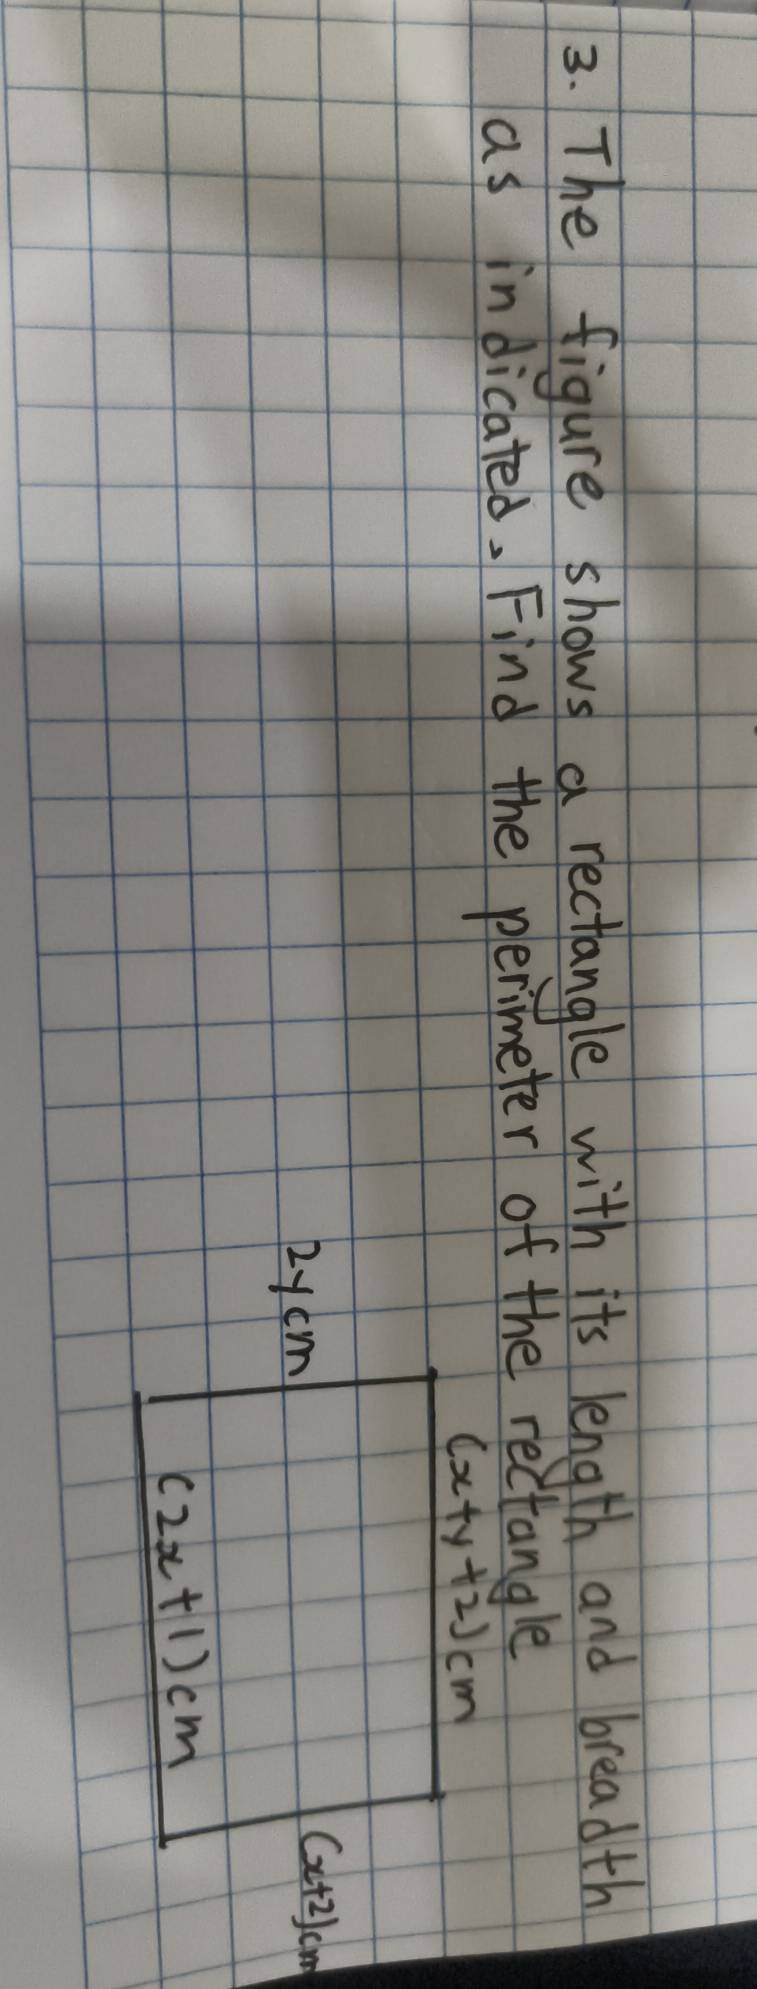 3. The figure shows a rectangle with its length and breadth
as indicated. Find the perimeter of the rectangle
(x+y+2)cm
2ycm
(x+2)cm
(2x+1)cm